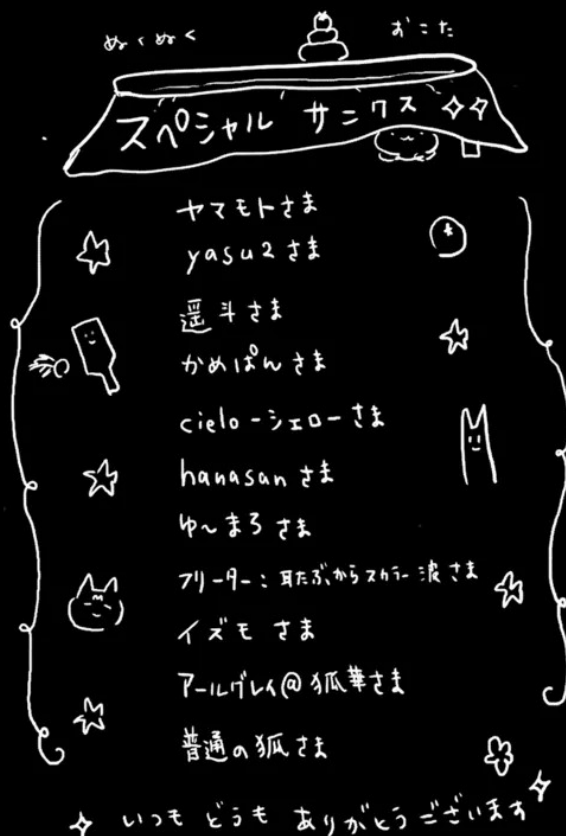 ぬくぬく おこた
スペシャル サンクス
ヤマモトさま
yasu2さま
遥斗さま
かめぱんさま
cielo-シェローさま
hanasanさま
ゆ〜まろさま
フリーター:耳たぶからスカラー波さま
イズモさま
アールグレイ@狐華さま
普通の狐さま
いつも どうも ありがとうございます